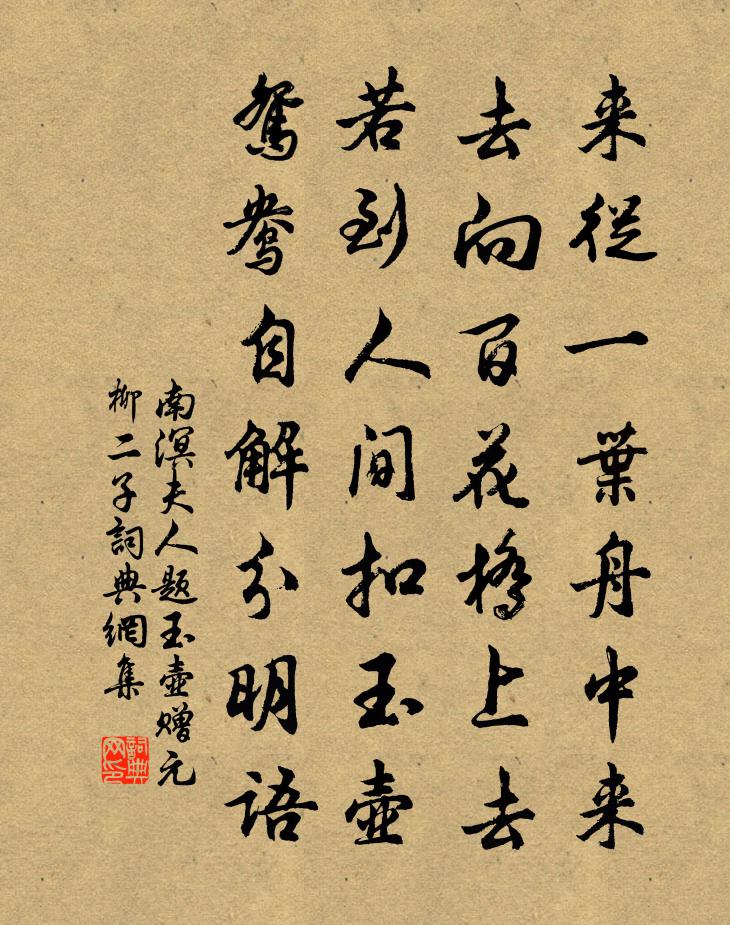 来從一葉舟中来
去向百花橋上去
若到人間扣玉壺
鴛鴦自解分明語
南溟夫人题玉壺赠元
柳二子詞典網集
詞典
网印